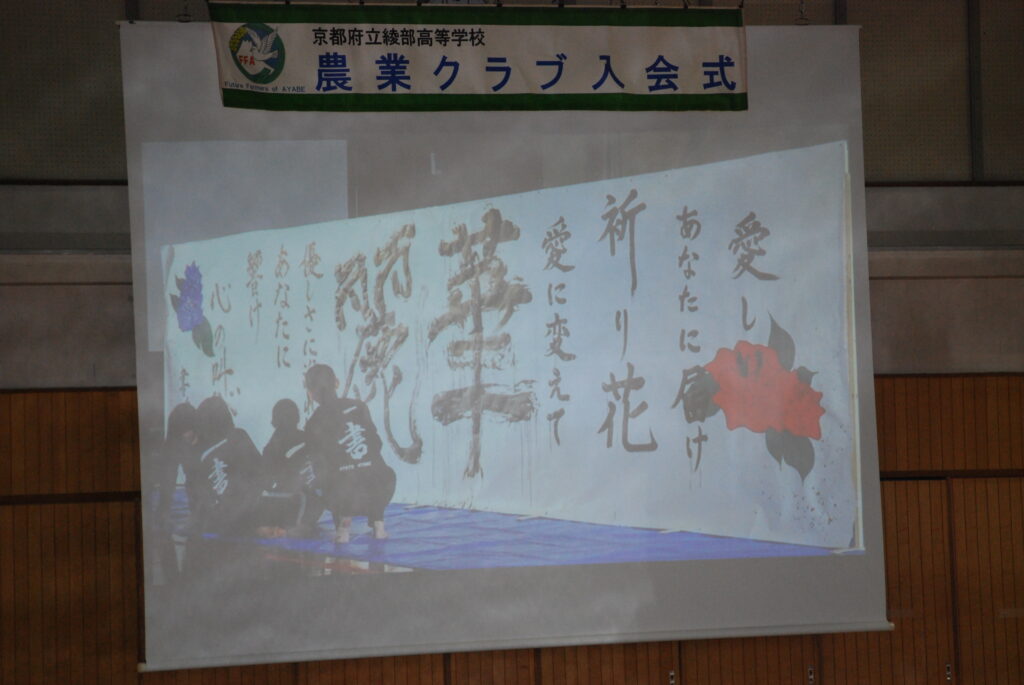 京都府立綾部高等学校
農業クラブ入会式
FFA
Future Farmers of AYABE
愛しい
あなたに届け
祈り花
愛に変えて
華
優しさに
あなたに
響け
心の叫び
書
書